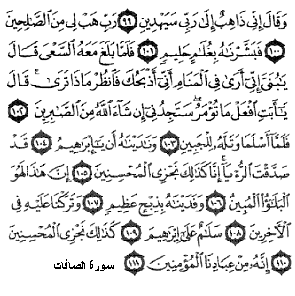 وَقَالَ إِنِّي ذَاهِبٌ إِلَىٰ رَبِّي سَيَهْدِينِ ﴿٩٩﴾ رَبِّ هَبْ لِي مِنَ الصَّالِحِينَ
﴿١٠٠﴾ فَبَشَّرْنَاهُ بِغُلَامٍ حَلِيمٍ ﴿١٠١﴾ فَلَمَّا بَلَغَ مَعَهُ السَّعْيَ قَالَ
يَا بُنَيَّ إِنِّي أَرَىٰ فِي الْمَنَامِ أَنِّي أَذْبَحُكَ فَانظُرْ مَاذَا تَرَىٰ ۚ قَالَ
يَا أَبَتِ افْعَلْ مَا تُؤْمَرُ ۖ سَتَجِدُنِي إِن شَاءَ اللَّهُ مِنَ الصَّابِرِينَ ﴿١٠٢﴾
فَلَمَّا أَسْلَمَا وَتَلَّهُ لِلْجَبِينِ ﴿١٠٣﴾ وَنَادَيْنَاهُ أَن يَا إِبْرَاهِيمُ ﴿١٠٤﴾ قَدْ
صَدَّقْتَ الرُّؤْيَا ۚ إِنَّا كَذَٰلِكَ نَجْزِي الْمُحْسِنِينَ ﴿١٠٥﴾ إِنَّ هَٰذَا لَهُوَ
الْبَلَاءُ الْمُبِينُ ﴿١٠٦﴾ وَفَدَيْنَاهُ بِذِبْحٍ عَظِيمٍ ﴿١٠٧﴾ وَتَرَكْنَا عَلَيْهِ فِي
الْآخِرِينَ ﴿١٠٨﴾ سَلَامٌ عَلَىٰ إِبْرَاهِيمَ ﴿١٠٩﴾ كَذَٰلِكَ نَجْزِي الْمُحْسِنِينَ
﴿١١٠﴾ إِنَّهُ مِنْ عِبَادِنَا الْمُؤْمِنِينَ ﴿١١١﴾ سورة الصافات